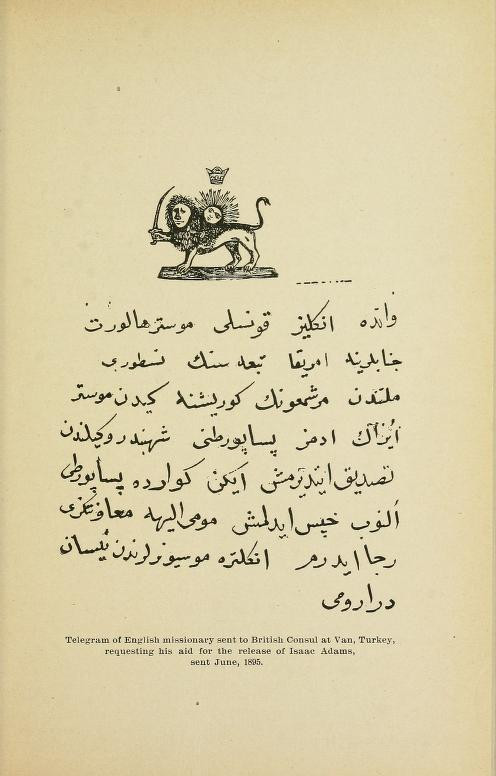 وانده انكليز قونسلى موسترهالورت
جنابلرينه امريقا تبعه سنك نسطورى
ملتندن مرشمعونك كوريشنه كيدن موستر
ادمز پساپورطنى شهبندر وكيلندن
تصديق ايتديرمش ايكن كوارده پساپورطى
النوب حپس ايدلمش مومى اليهه معاونتكزى
رجا ايدرم انكلتره موسيونرلرندن نيسان
Telegram of English missionary sent to British Consul at Van, Turkey,
requesting his aid for the release of Isaac Adams,
sent June, 1895.